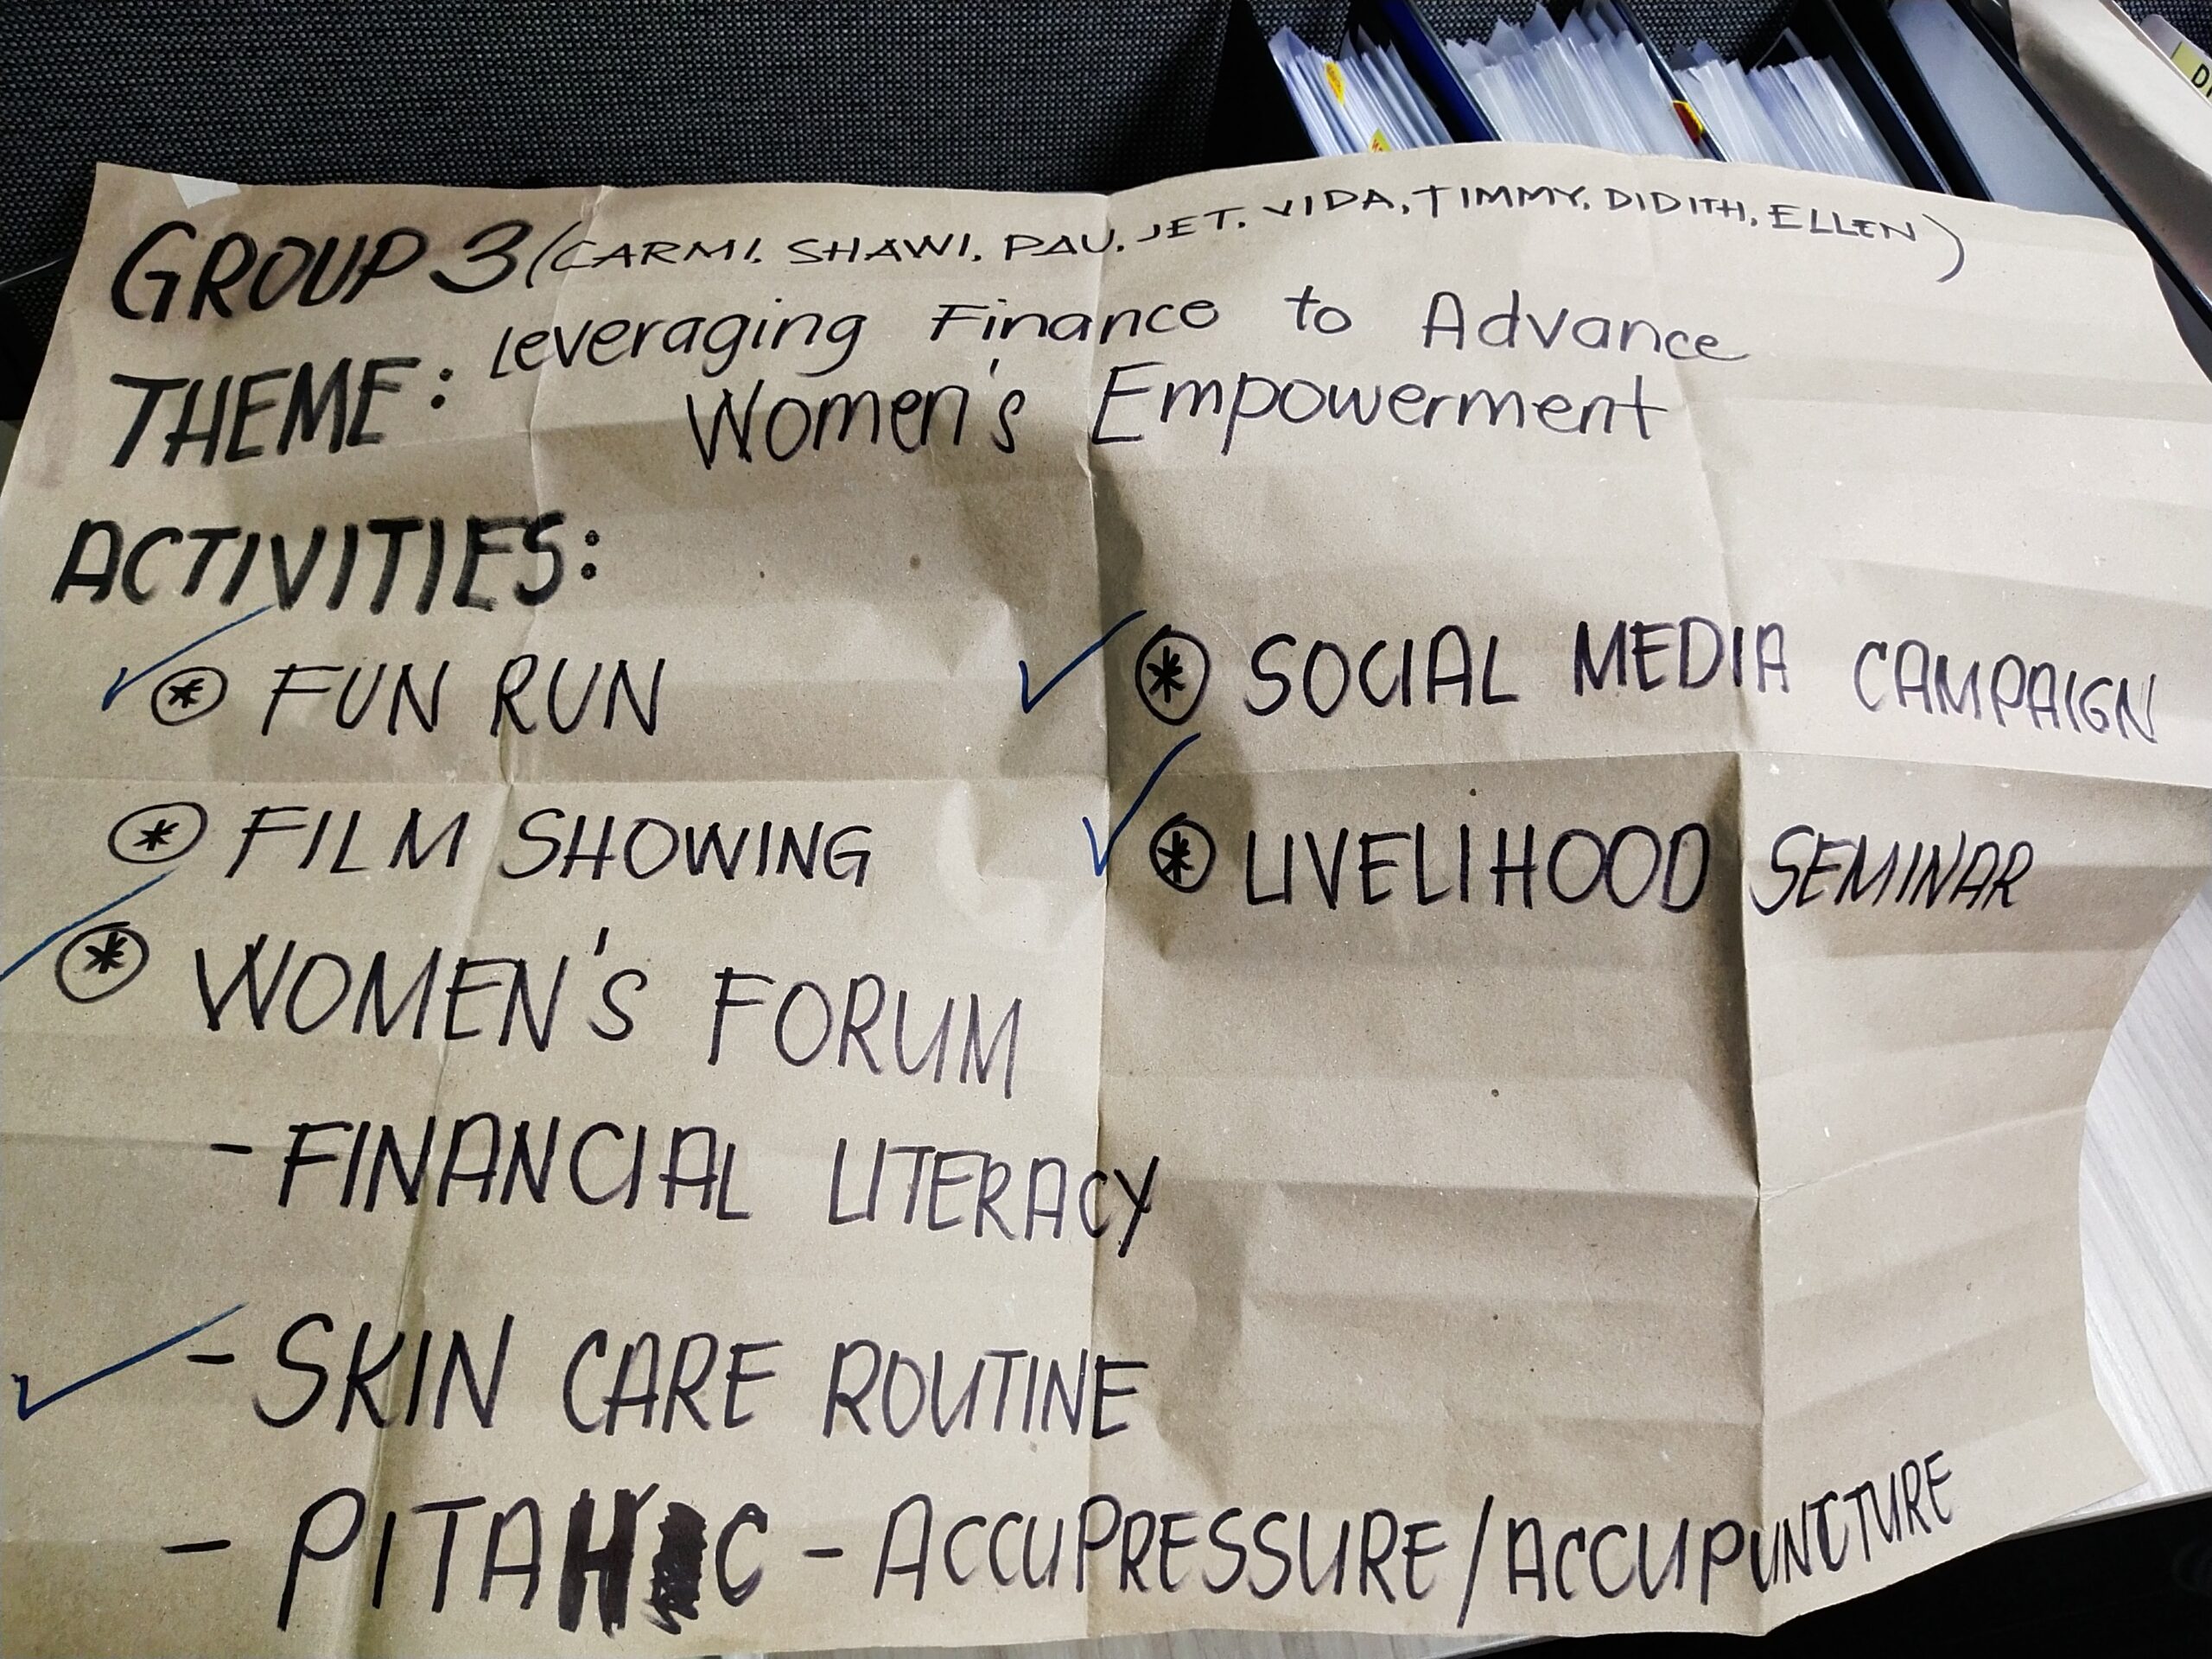 GROUP 3 (CARMI, SHAWI, PAU, JET, VIDA, TIMMY, DIDITH, ELLEN)
THEME: Leveraging Finance to Advance
Women's Empowerment
ACTIVITIES:
✓ * FUN RUN
* FILM SHOWING
✓ * WOMEN'S FORUM
- FINANCIAL LITERACY
✓ - SKIN CARE ROUTINE
- PITAHC - ACCUPRESSURE/ACCUPUNCTURE
✓ * SOCIAL MEDIA CAMPAIGN
✓ * LIVELIHOOD SEMINAR